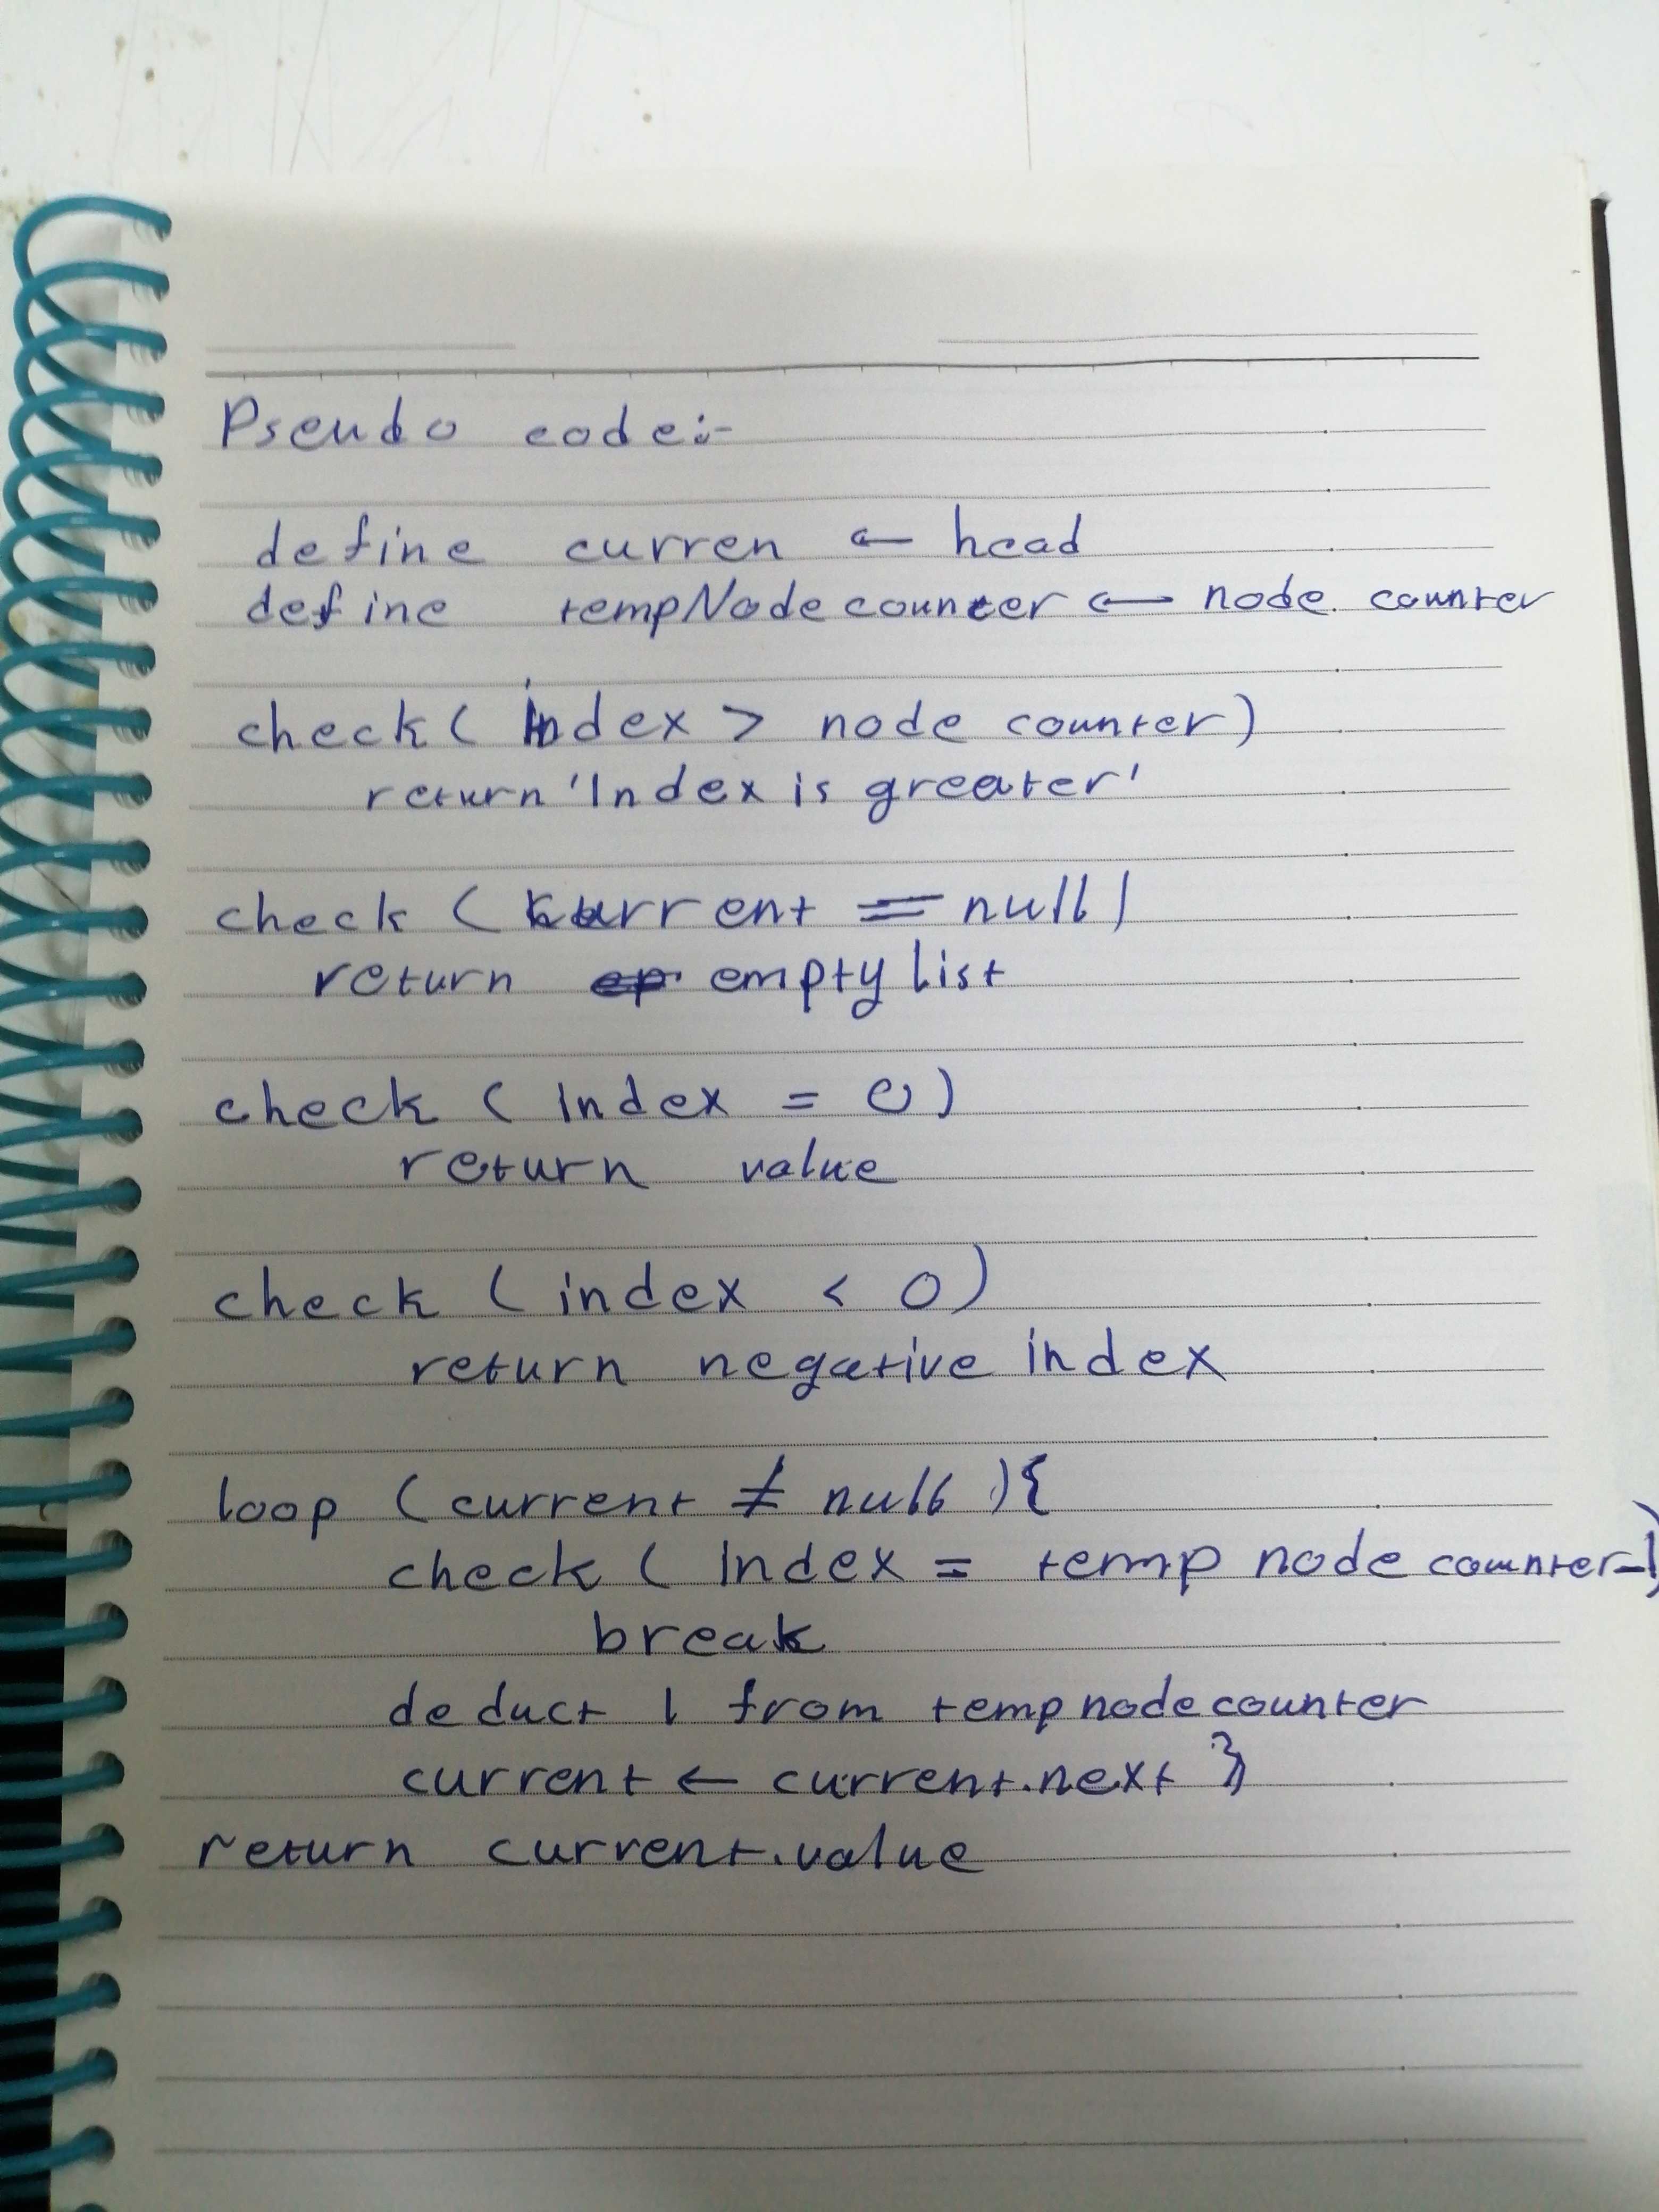 Pseudo code:-
define curren ← head
define tempNode counter ← node counter
check ( Index > node counter)
return 'Index is greater'
check ( current == null)
return empty list
check ( index = 0)
return value
check ( index < 0)
return negative index
loop ( current ≠ null ){
check ( Index = temp node counter-1)
break
deduct 1 from temp node counter
current ← current.next }
return current.value